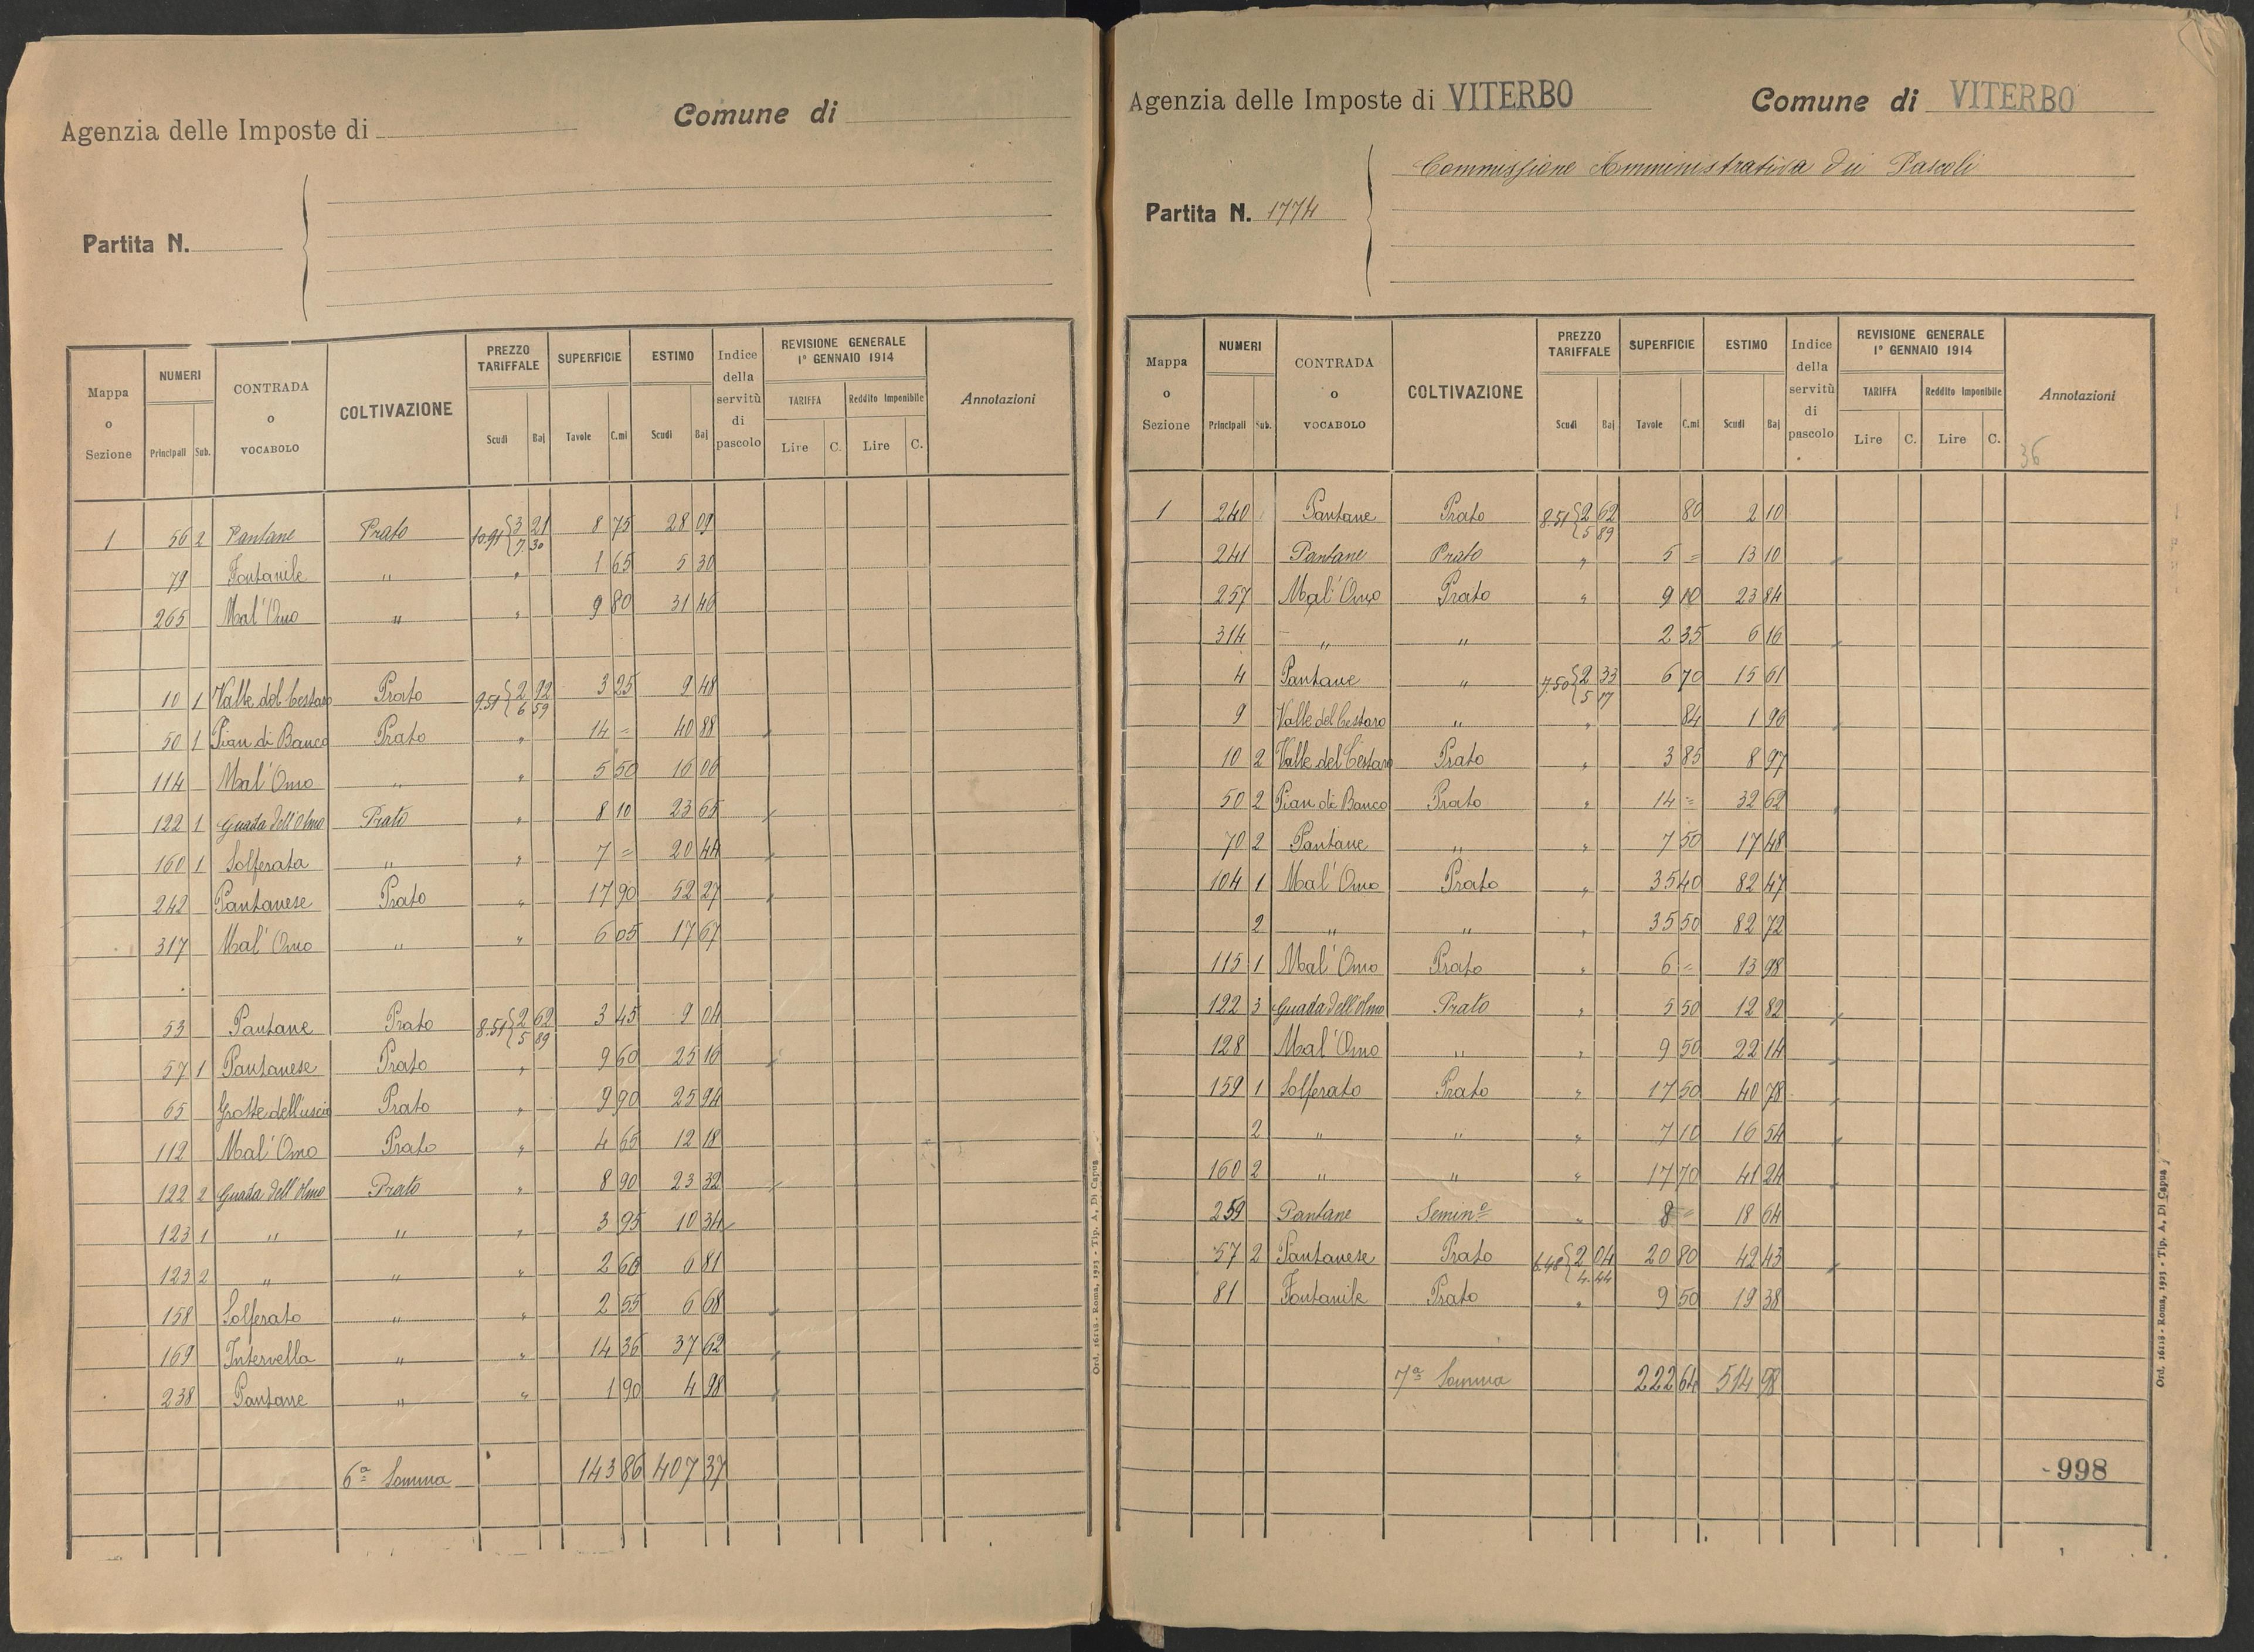 Agenzia delle Imposte di
Comune di
Partita N.
Mappa o Sezione | NUMERI Principali Sub. | CONTRADA o VOCABOLO | COLTIVAZIONE | PREZZO TARIFFALE Scudi Baj | SUPERFICIE Tavole C.mi | ESTIMO Scudi Baj | Indice della servitù di pascolo | REVISIONE GENERALE 1° GENNAIO 1914 TARIFFA Lire C. Reddito Imponibile Lire C. | Annotazioni
1 56 2 Pantane Prato 10.91 { 3 21 / 7.30 8 75 28 09
79 Fontanile " " 1 65 5 30
265 Mal'Omo " " 9 80 31 46
10 1 Valle del Cestaro Prato 9.51 { 2 92 / 6 59 3 25 9 48
50 1 Pian di Banco Prato " 14 = 40 88
114 Mal'Omo " " 5 50 16 06
122 1 Guada dell'Olmo Prato " 8 10 23 65
160 1 Solferata " " 7 = 20 44
242 Pantanese Prato " 17 90 52 27
317 Mal'Omo " " 6 05 17 67
53 Pantane Prato 8.51 { 2 62 / 5 89 3 45 9 04
57 1 Pantanese Prato " 9 60 25 16
65 Grotte dell'uscio Prato " 9 90 25 94
112 Mal'Omo Prato " 4 65 12 18
122 2 Guada dell'Olmo Prato " 8 90 23 32
123 1 " " " 3 95 10 34
123 2 " " " 2 60 6 81
158 Solferato " " 2 55 6 68
169 Intervella " " 14 36 37 62
238 Pantane " " 1 90 4 98
6ª Somma 143 86 407 37
Ord. 16118 - Roma, 1923 - Tip. A. Di Capua
Agenzia delle Imposte di VITERBO
Comune di VITERBO
Commissione Amministrativa dei Pascoli
Partita N. 1774
Mappa o Sezione | NUMERI Principali Sub. | CONTRADA o VOCABOLO | COLTIVAZIONE | PREZZO TARIFFALE Scudi Baj | SUPERFICIE Tavole C.mi | ESTIMO Scudi Baj | Indice della servitù di pascolo | REVISIONE GENERALE 1° GENNAIO 1914 TARIFFA Lire C. Reddito Imponibile Lire C. | Annotazioni
36
1 240 Pantane Prato 8.51 { 2 62 / 5 89 80 2 10
241 Pantane Prato " 5 = 13 10
257 Mal'Omo Prato " 9 10 23 84
314 " " 2 35 6 16
4 Pantane " 7.50 { 2 33 / 5 17 6 70 15 61
9 Valle del Cestaro " " 84 1 96
10 2 Valle del Cestaro Prato " 3 85 8 97
50 2 Pian di Banco Prato " 14 = 32 62
70 2 Pantane " " 7 50 17 48
104 1 Mal'Omo Prato " 35 40 82 47
2 " " " 35 50 82 72
115 1 Mal'Omo Prato " 6 = 13 98
122 3 Guada dell'Olmo Prato " 5 50 12 82
128 Mal'Omo " " 9 50 22 14
159 1 Solferato Prato " 17 50 40 78
2 " " " 7 10 16 54
160 2 " " " 17 70 41 24
259 Pantane Semin.º " 8 = 18 64
57 2 Pantanese Prato 6.48 { 2 04 / 4.44 20 80 42 43
81 Fontanile Prato " 9 50 19 38
7ª Somma 222 64 514 98
998
Ord. 16118 - Roma, 1923 - Tip. A. Di Capua